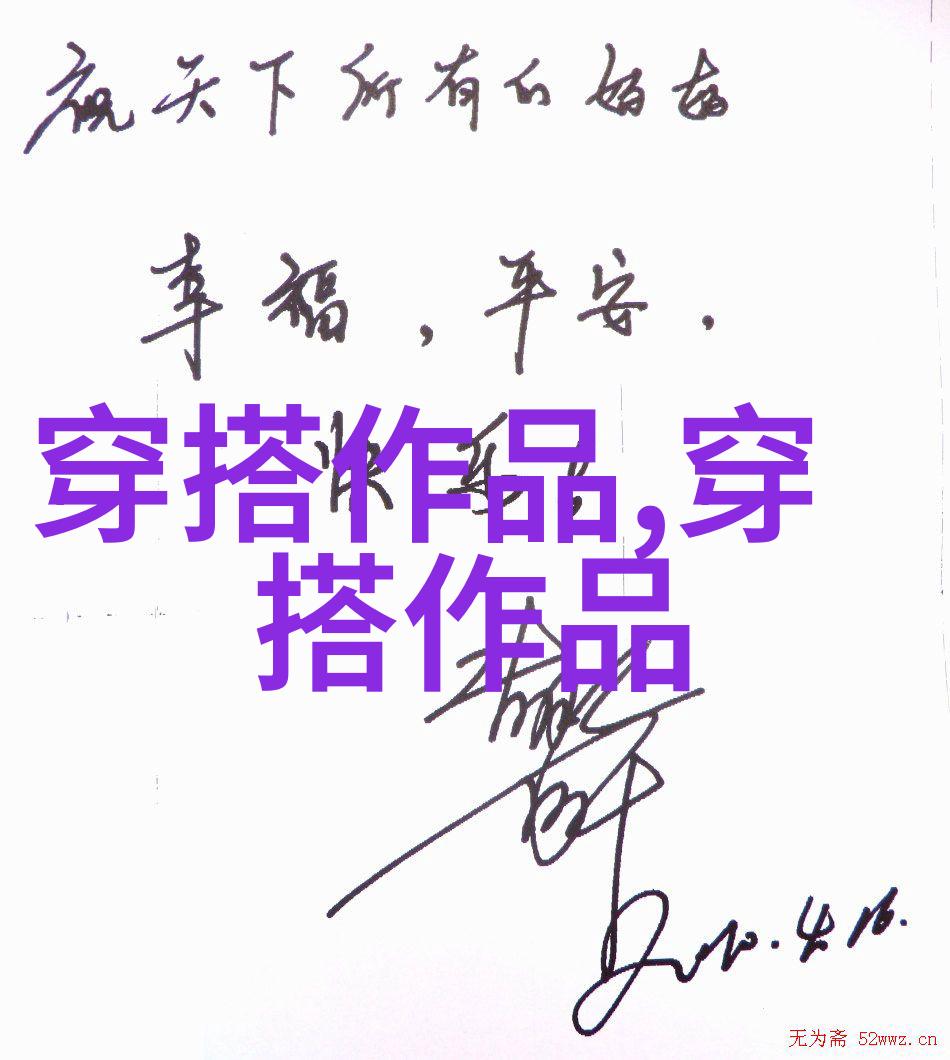 祝天下所有的妈妈
幸福，平安，
快乐！
穿搭作品,穿
搭作品
2010.4.16.
无为斋 52wwz.cn